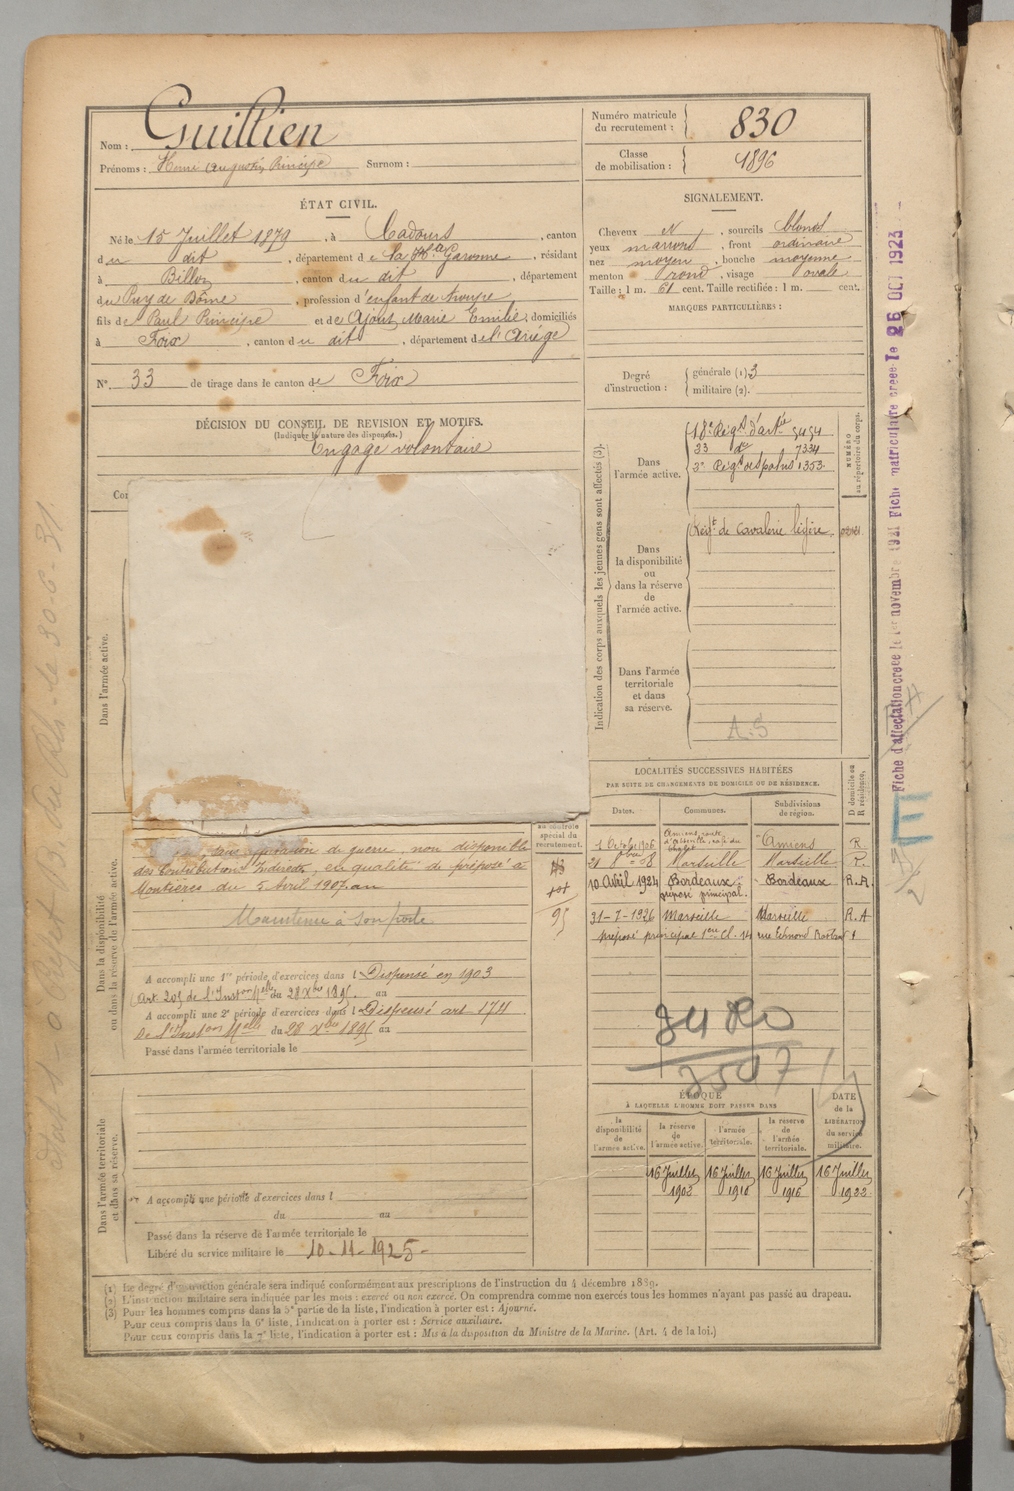 Nom : Guillien
Prénoms : Henri Augustin Principe Surnom :
Numéro matricule du recrutement : 830
Classe de mobilisation : 1896
ÉTAT CIVIL.
Né le 15 Juillet 1879, à Cadours, canton
du dit, département de la Hte Garonne, résidant
à Billom, canton du dit, département
du Puy de Dôme, profession d'enfant de troupe
fils de Paul Principe et de Ajout Marie Emilie, domiciliés
à Foix, canton du dit, département de l'Ariège
N° 33 de tirage dans le canton de Foix
SIGNALEMENT.
Cheveux N, sourcils blonds
yeux marrons, front ordinaire
nez moyen, bouche moyenne
menton rond, visage ovale
Taille : 1 m. 61 cent. Taille rectifiée : 1 m. cent.
MARQUES PARTICULIÈRES :
Degré d'instruction : générale (1) 3
militaire (2).
DÉCISION DU CONSEIL DE REVISION ET MOTIFS.
(Indiquer la nature des dispenses.)
Engagé volontaire
Indication des corps auxquels les jeunes gens sont affectés (3).
NUMÉRO au répertoire du corps.
Dans l'armée active.
18e Régt d'artie 5454
33 do 7334
3e Régt de spahis 1353
Dans la disponibilité ou dans la réserve de l'armée active.
Régt de Cavalerie légère
Dans l'armée territoriale et dans sa réserve.
A.S
Dans l'armée active.
Dans la disponibilité ou dans la réserve de l'armée active.
au contrôle spécial du recrutement.
de guerre, non disponible
des Contributions Indirectes, en qualité de préposé à
Montières du 5 Avril 1907 au
Maintenu à son poste
A accompli une 1re période d'exercices dans l Dispensé en 1903
(Art. 205 de l'Inston Melle du 28 Xbre 1895. au
A accompli une 2e période d'exercices dans l Dispensé art 174
De l'Inston Melle du 28 Xbre 1895 au
Passé dans l'armée territoriale le
95
LOCALITÉS SUCCESSIVES HABITÉES
PAR SUITE DE CHANGEMENTS DE DOMICILE OU DE RÉSIDENCE.
Dates. Communes. Subdivisions de région. D domicile ou R résidence.
Amiens, route
Amiens R
Marseille Marseille R.
10 Avril 1924 Bordeaux Bordeaux R.A.
préposé principal.
31-7-1926 Marseille Marseille R.A
préposé principal 1ère Cl. 14 rue Edmond Rostand
3480
3547
ÉPOQUE
À LAQUELLE L'HOMME DOIT PASSER DANS
la disponibilité de l'armée active.
la réserve de l'armée active.
l'armée territoriale.
la réserve de l'armée territoriale.
DATE de la LIBÉRATION du service militaire.
16 Juillet 1902 16 Juillet 1910 16 Juillet 1916 16 Juillet 1922
Dans l'armée territoriale et dans sa réserve.
A accompli une période d'exercices dans l
du au
Passé dans la réserve de l'armée territoriale le
Libéré du service militaire le 10-11-1925-
(1) Le degré d'instruction générale sera indiqué conformément aux prescriptions de l'instruction du 4 décembre 1889.
(2) L'instruction militaire sera indiquée par les mots : exercé ou non exercé. On comprendra comme non exercés tous les hommes n'ayant pas passé au drapeau.
(3) Pour les hommes compris dans la 5e partie de la liste, l'indication à porter est : Ajourné.
Pour ceux compris dans la 6e liste, l'indication à porter est : Service auxiliaire.
Pour ceux compris dans la 7e liste, l'indication à porter est : Mis à la disposition du Ministre de la Marine. (Art. 4 de la loi.)
Fiche d'affectation créée le 1er novembre 1921 Fiche matriculaire créée le 26 OCT 1923